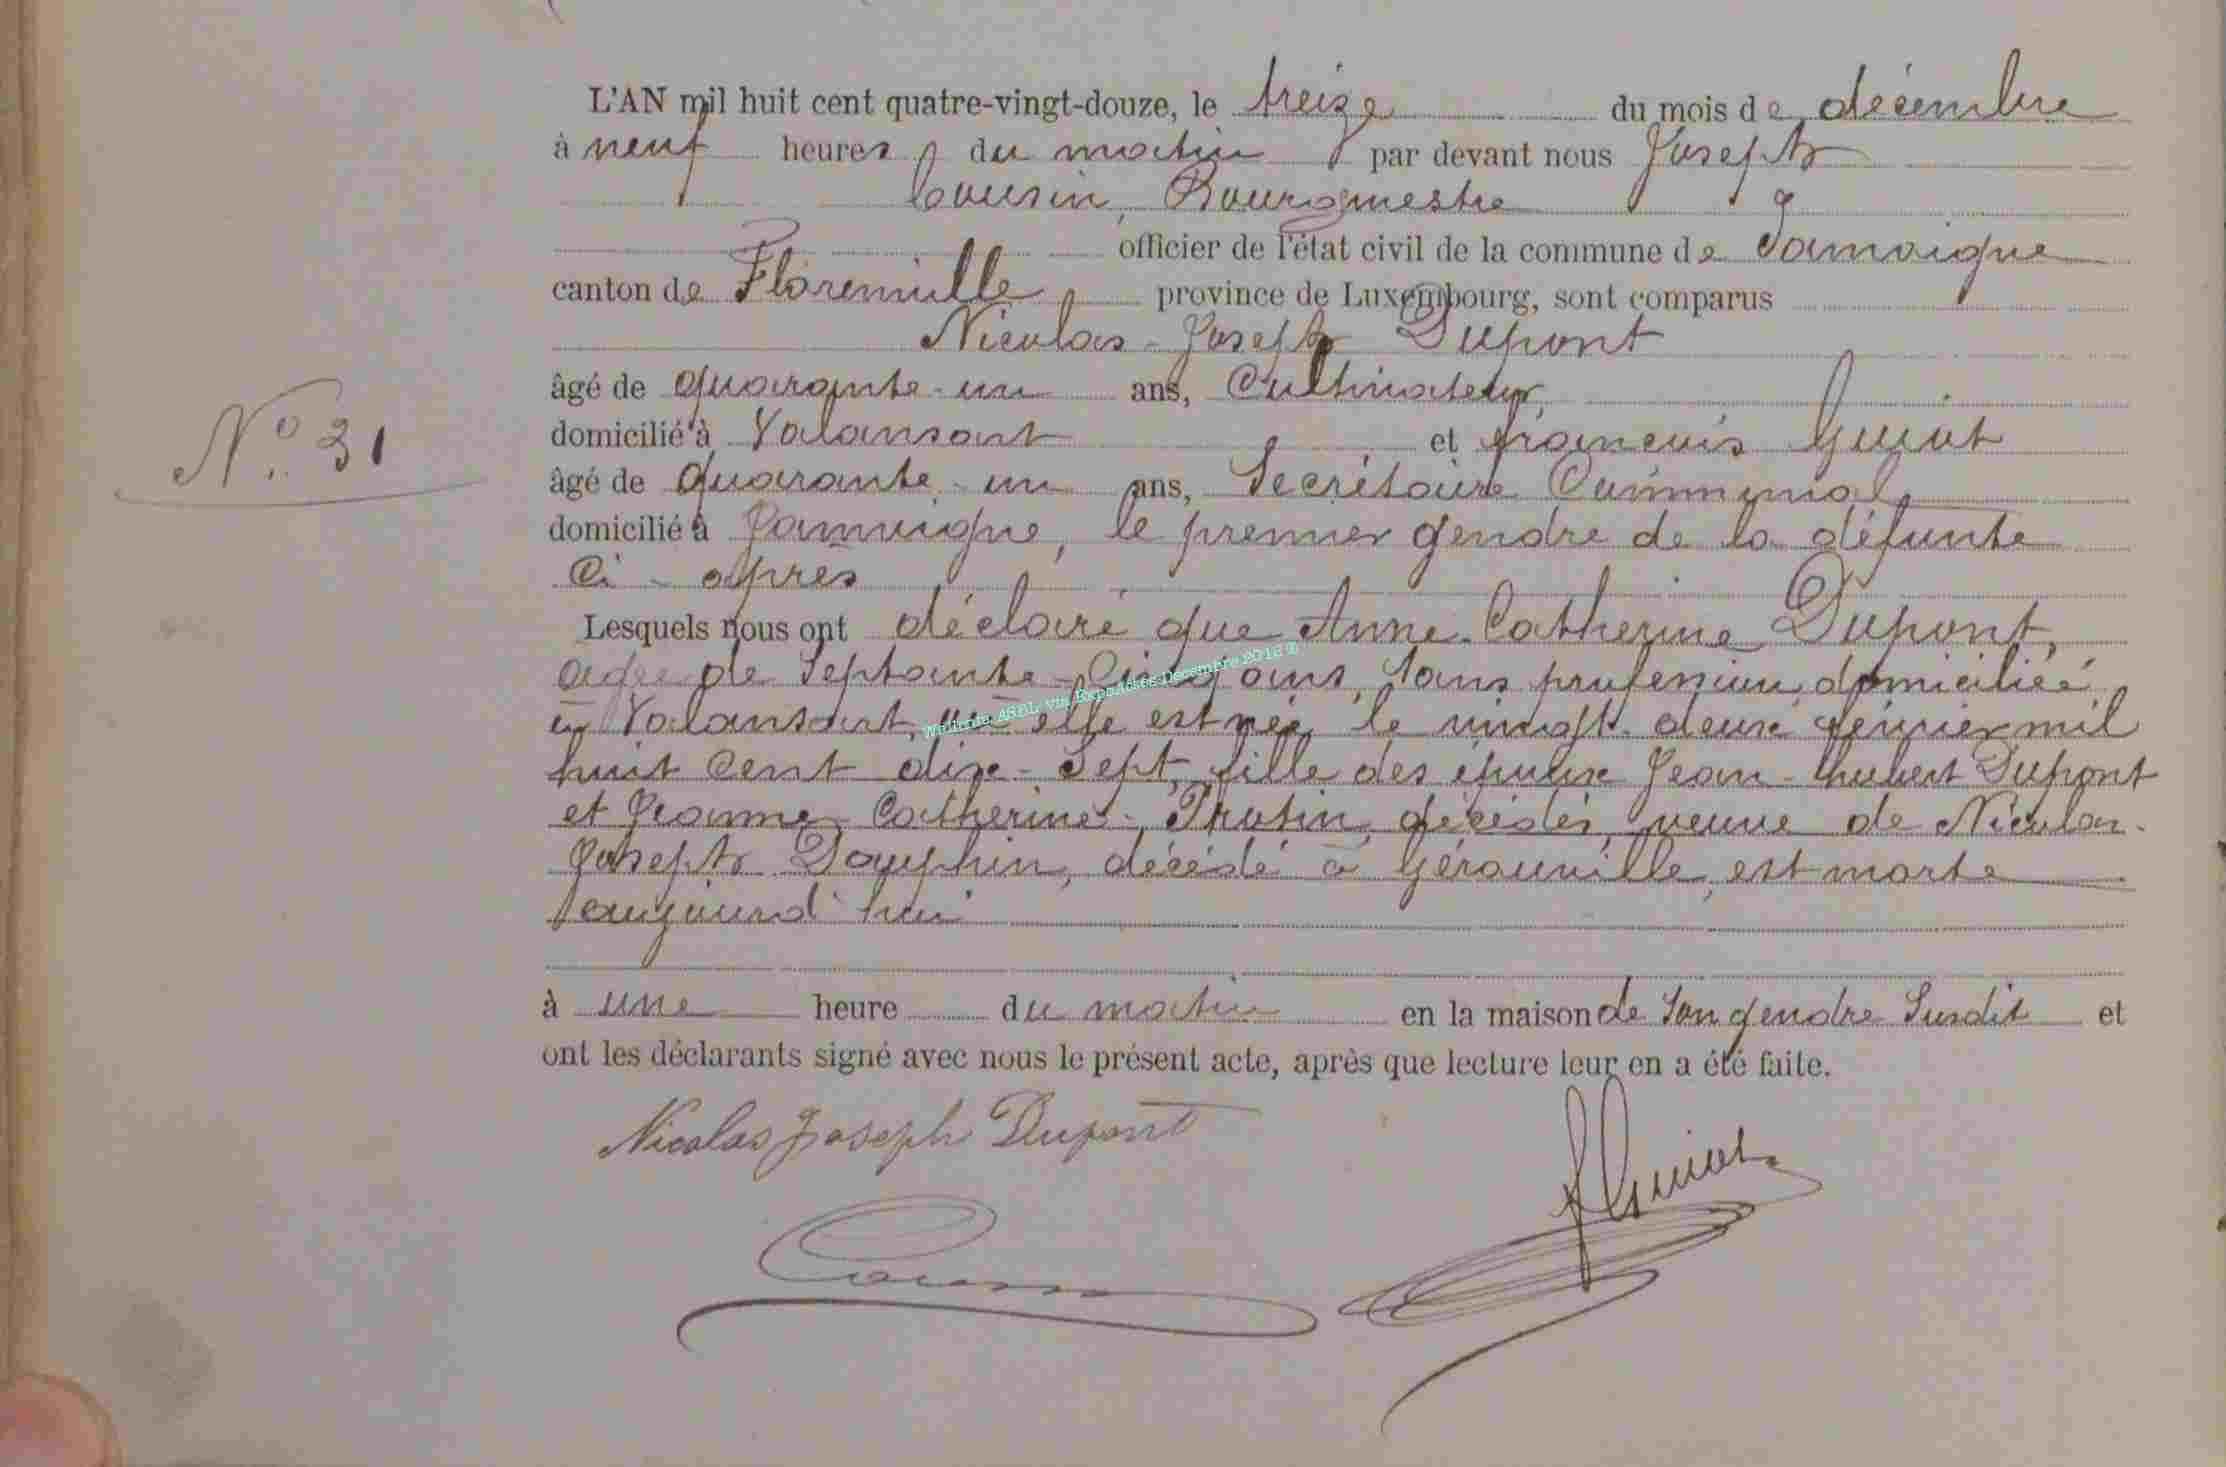 L'AN mil huit cent quatre-vingt-douze, le treize du mois de décembre
à neuf heures du matin par devant nous Joseph
Cousin, Bourgmestre
officier de l'état civil de la commune de Jamoigne
canton de Florenville province de Luxembourg, sont comparus
Nicolas-Joseph Dupont
âgé de quarante-un ans, Cultivateur,
domicilié à Valansart et françois Guiot
N° 31
âgé de quarante-un ans, Secrétaire Communal,
domicilié à Jamoigne, le premier gendre de la défunte
Ci-après
Lesquels nous ont déclaré que Anne-Catherine Dupont,
agée de Septante-Cinq ans, sans profession, domiciliée
à Valansart, où elle est née, le vingt-deux février mil
huit Cent dix-Sept, fille des époux Jean-hubert Dupont
et Jeanne-Catherine Thutin, décédés, veuve de Nicolas-
Joseph Dauphin, décédé à Gérouville, est morte
aujourd'hui
à une heure du matin en la maison de son gendre Susdit et
ont les déclarants signé avec nous le présent acte, après que lecture leur en a été faite.
Nicolas Joseph Dupont
F Guiot
Cousin